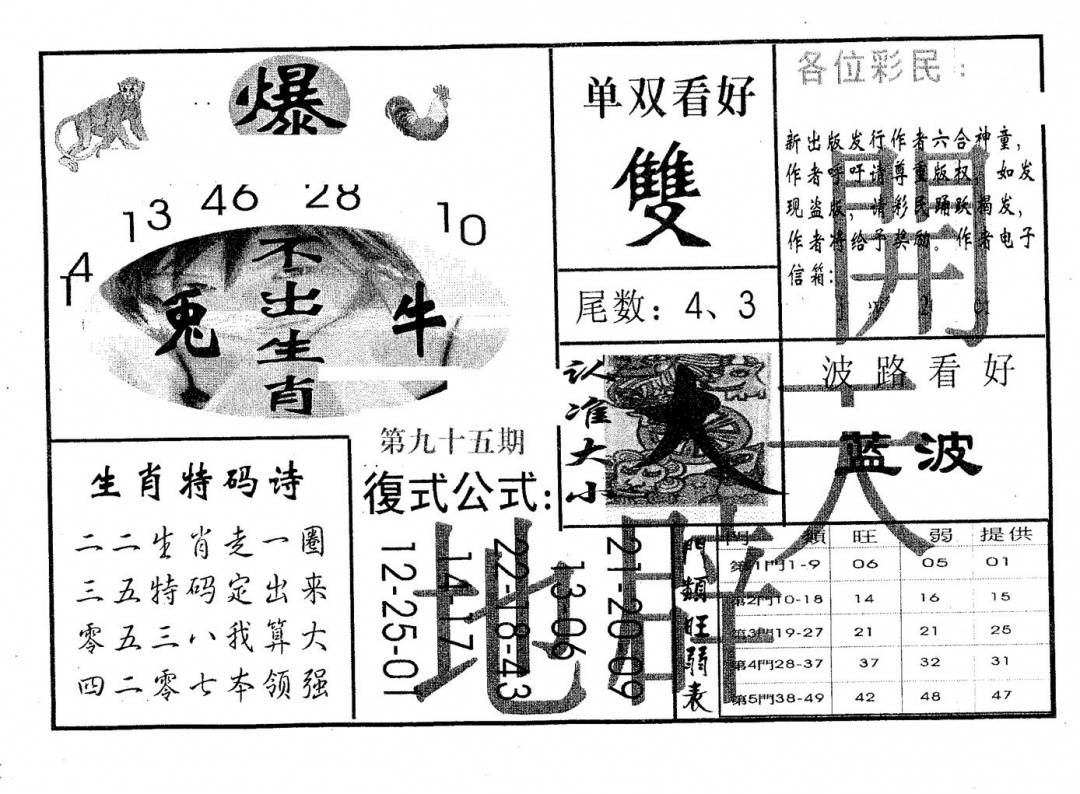 爆
46 28
13 10
14
不出生肖
兎 牛
单双看好
雙
尾数：4、3
各位彩民：
新出版发行作者六合神童，
作者呼吁请尊重版权，如发
现盗版，请彩民踊跃揭发，
作者将给予奖励。作者电子
信箱：
開
天
地
认准大小
大
波路看好
蓝波
第九十五期
復式公式：
12-25-01
14-17
22-18-43
13-06
21-20-09
生肖特码诗
二二生肖走一圈
三五特码定出来
零五三八我算大
四二零七本领强
門類旺弱表
門類 旺 弱 提供
第1門1-9 06 05 01
第2門10-18 14 16 15
第3門19-27 21 21 25
第4門28-37 37 32 31
第5門38-49 42 48 47